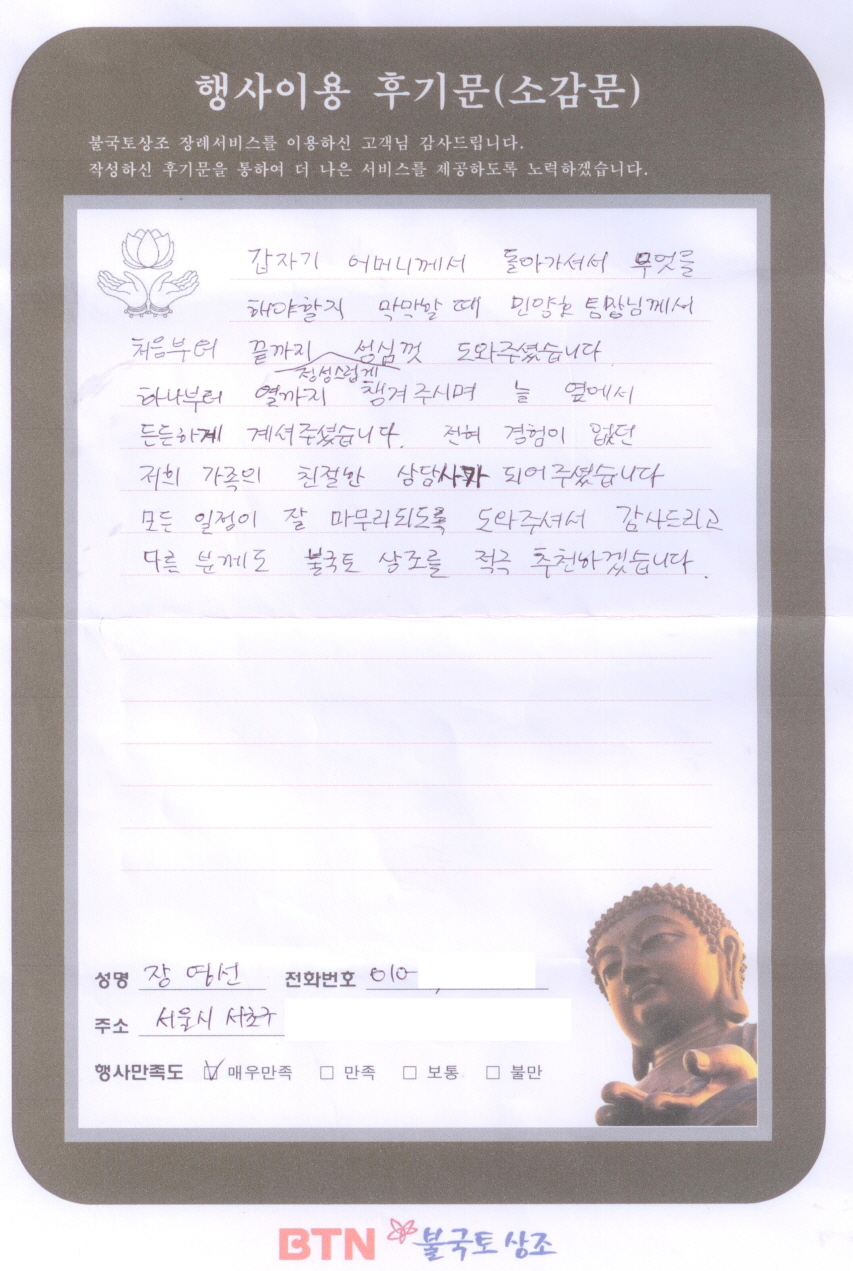 행사이용 후기문(소감문)
불국토상조 장례서비스를 이용하신 고객님 감사드립니다.
작성하신 후기문을 통하여 더 나은 서비스를 제공하도록 노력하겠습니다.
갑자기 어머니께서 돌아가셔서 무엇을
해야할지 막막할 때 민양호 팀장님께서
처음부터 끝까지 성심껏 도와주셨습니다
정성스럽게
하나부터 열까지 챙겨주시며 늘 옆에서
든든하게 계셔주셨습니다. 전혀 경험이 없던
저희 가족의 친절한 상담사가 되어주셨습니다
모든 일정이 잘 마무리되도록 도와주셔서 감사드리고
다른 분께도 불국토 상조를 적극 추천하겠습니다.
성명 장영선 전화번호 010-
주소 서울시 서초구
행사만족도 ☑ 매우만족 □ 만족 □ 보통 □ 불만
BTN 불국토상조